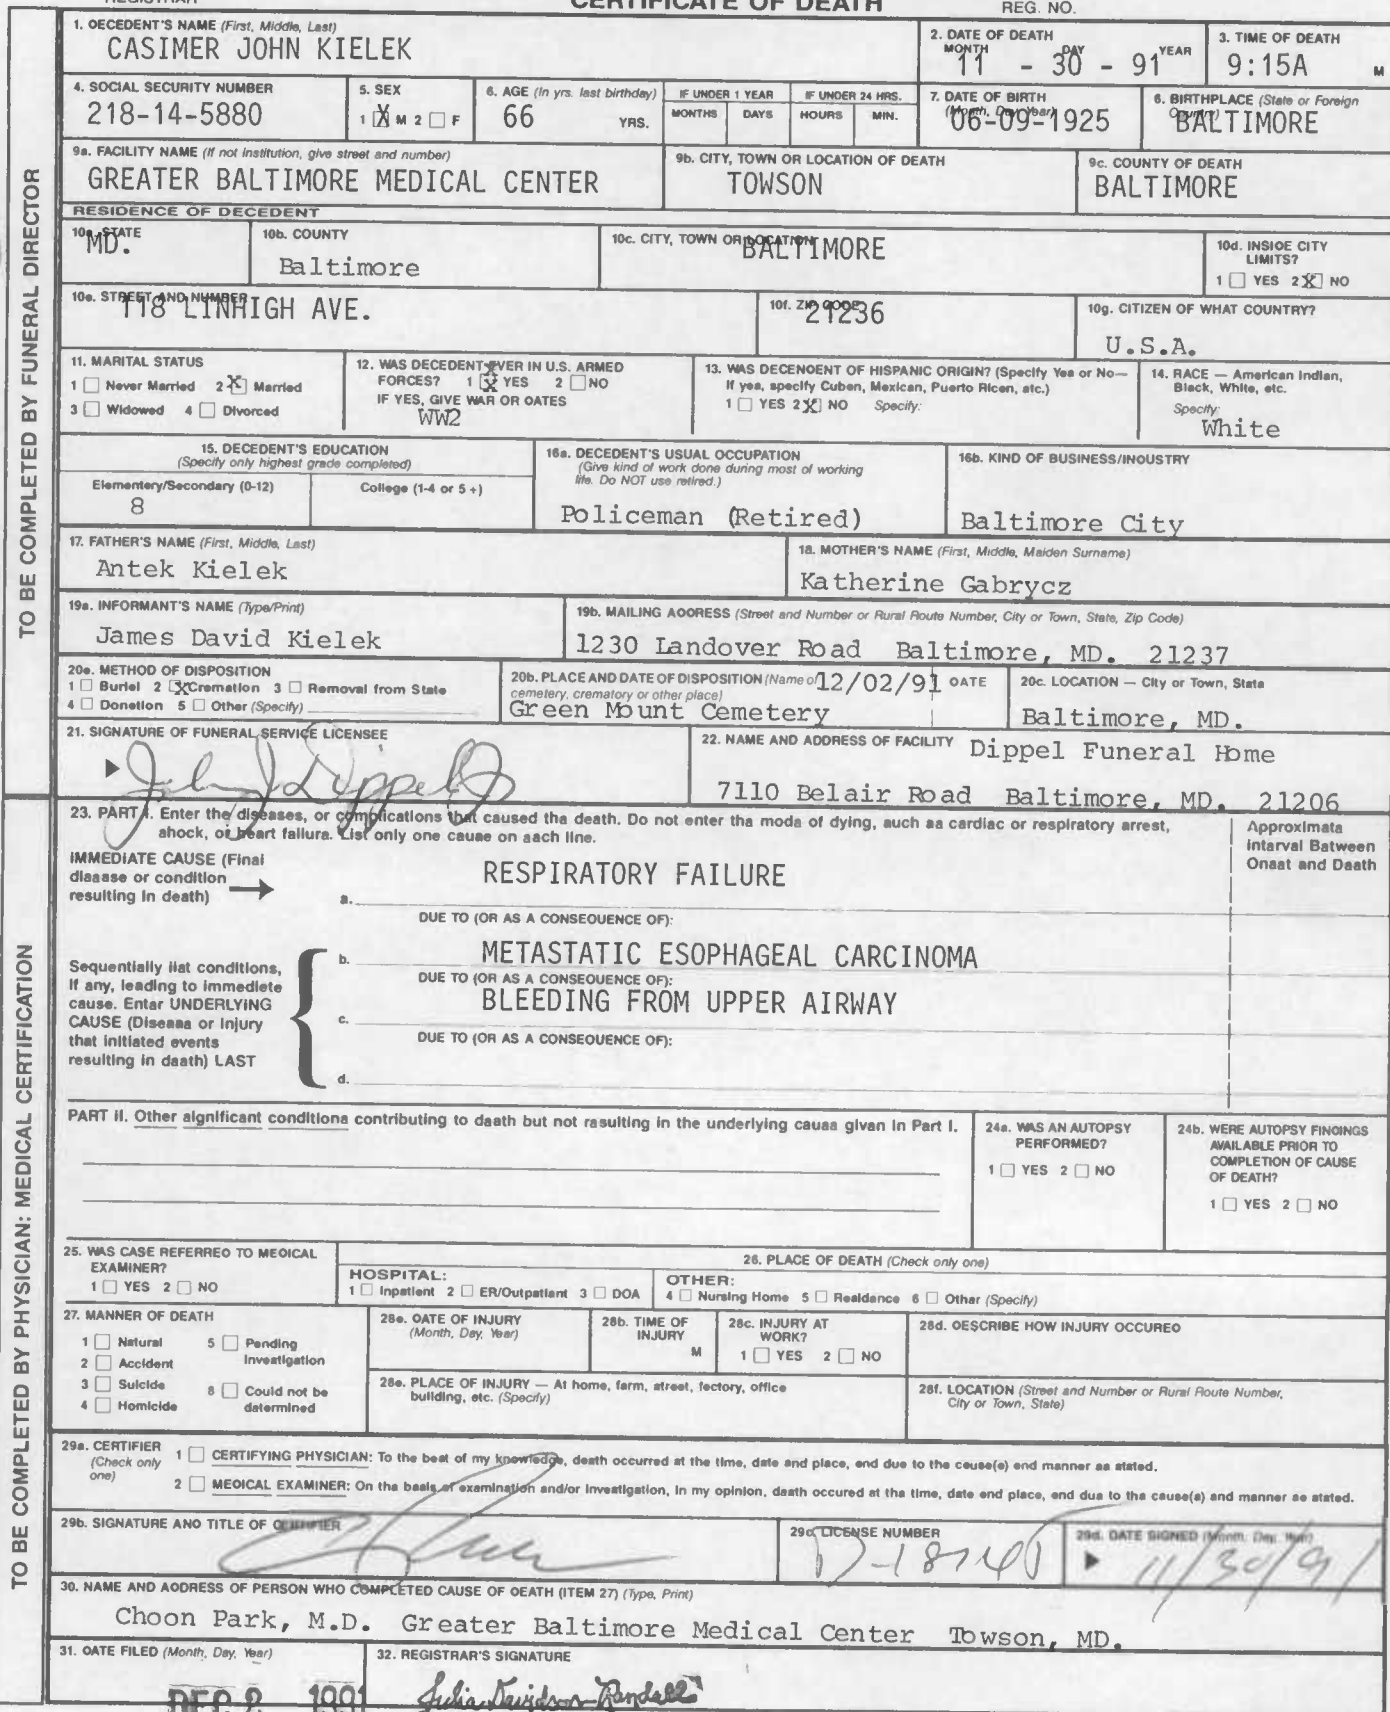 REGISTRAR CERTIFICATE OF DEATH REG. NO.
TO BE COMPLETED BY FUNERAL DIRECTOR
1. DECEDENT'S NAME (First, Middle, Last)
CASIMER JOHN KIELEK
2. DATE OF DEATH
MONTH DAY YEAR
11 - 30 - 91
3. TIME OF DEATH
9:15A M
4. SOCIAL SECURITY NUMBER
218-14-5880
5. SEX
1 X M 2 ☐ F
6. AGE (In yrs. last birthday)
66 YRS.
IF UNDER 1 YEAR
MONTHS DAYS
IF UNDER 24 HRS.
HOURS MIN.
7. DATE OF BIRTH
(Month, Day, Year)
06-09-1925
8. BIRTHPLACE (State or Foreign
Country)
BALTIMORE
9a. FACILITY NAME (If not institution, give street and number)
GREATER BALTIMORE MEDICAL CENTER
9b. CITY, TOWN OR LOCATION OF DEATH
TOWSON
9c. COUNTY OF DEATH
BALTIMORE
RESIDENCE OF DECEDENT
10a. STATE
MD.
10b. COUNTY
Baltimore
10c. CITY, TOWN OR LOCATION
BALTIMORE
10d. INSIDE CITY
LIMITS?
1 ☐ YES 2 X NO
10e. STREET AND NUMBER
118 LINHIGH AVE.
10f. ZIP CODE
21236
10g. CITIZEN OF WHAT COUNTRY?
U.S.A.
11. MARITAL STATUS
1 ☐ Never Married 2 X Married
3 ☐ Widowed 4 ☐ Divorced
12. WAS DECEDENT EVER IN U.S. ARMED
FORCES? 1 X YES 2 ☐ NO
IF YES, GIVE WAR OR DATES
WW2
13. WAS DECENDENT OF HISPANIC ORIGIN? (Specify Yes or No—
If yes, specify Cuban, Mexican, Puerto Rican, etc.)
1 ☐ YES 2 X NO Specify:
14. RACE — American Indian,
Black, White, etc.
Specify:
White
15. DECEDENT'S EDUCATION
(Specify only highest grade completed)
Elementary/Secondary (0-12) College (1-4 or 5+)
8
16a. DECEDENT'S USUAL OCCUPATION
(Give kind of work done during most of working
life. Do NOT use retired.)
Policeman (Retired)
16b. KIND OF BUSINESS/INDUSTRY
Baltimore City
17. FATHER'S NAME (First, Middle, Last)
Antek Kielek
18. MOTHER'S NAME (First, Middle, Maiden Surname)
Katherine Gabrycz
19a. INFORMANT'S NAME (Type/Print)
James David Kielek
19b. MAILING ADDRESS (Street and Number or Rural Route Number, City or Town, State, Zip Code)
1230 Landover Road Baltimore, MD. 21237
20a. METHOD OF DISPOSITION
1 ☐ Burial 2 X Cremation 3 ☐ Removal from State
4 ☐ Donation 5 ☐ Other (Specify)
20b. PLACE AND DATE OF DISPOSITION (Name of 12/02/91 DATE
cemetery, crematory or other place)
Green Mount Cemetery
20c. LOCATION — City or Town, State
Baltimore, MD.
21. SIGNATURE OF FUNERAL SERVICE LICENSEE
John J Dippel Jr
22. NAME AND ADDRESS OF FACILITY Dippel Funeral Home
7110 Belair Road Baltimore, MD. 21206
TO BE COMPLETED BY PHYSICIAN: MEDICAL CERTIFICATION
23. PART I. Enter the diseases, or complications that caused the death. Do not enter the mode of dying, such as cardiac or respiratory arrest,
shock, or heart failure. List only one cause on each line.
Approximate
Interval Between
Onset and Death
IMMEDIATE CAUSE (Final
disease or condition
resulting in death)
a. RESPIRATORY FAILURE
DUE TO (OR AS A CONSEQUENCE OF):
Sequentially list conditions,
if any, leading to immediate
cause. Enter UNDERLYING
CAUSE (Disease or injury
that initiated events
resulting in death) LAST
b. METASTATIC ESOPHAGEAL CARCINOMA
DUE TO (OR AS A CONSEQUENCE OF):
c. BLEEDING FROM UPPER AIRWAY
DUE TO (OR AS A CONSEQUENCE OF):
d.
PART II. Other significant conditions contributing to death but not resulting in the underlying cause given in Part I.
24a. WAS AN AUTOPSY
PERFORMED?
1 ☐ YES 2 ☐ NO
24b. WERE AUTOPSY FINDINGS
AVAILABLE PRIOR TO
COMPLETION OF CAUSE
OF DEATH?
1 ☐ YES 2 ☐ NO
25. WAS CASE REFERRED TO MEDICAL
EXAMINER?
1 ☐ YES 2 ☐ NO
26. PLACE OF DEATH (Check only one)
HOSPITAL:
1 ☐ Inpatient 2 ☐ ER/Outpatient 3 ☐ DOA
OTHER:
4 ☐ Nursing Home 5 ☐ Residence 6 ☐ Other (Specify)
27. MANNER OF DEATH
1 ☐ Natural 5 ☐ Pending
Investigation
2 ☐ Accident
3 ☐ Suicide 8 ☐ Could not be
determined
4 ☐ Homicide
28a. DATE OF INJURY
(Month, Day, Year)
28b. TIME OF
INJURY
M
28c. INJURY AT
WORK?
1 ☐ YES 2 ☐ NO
28d. DESCRIBE HOW INJURY OCCURED
28e. PLACE OF INJURY — At home, farm, street, factory, office
building, etc. (Specify)
28f. LOCATION (Street and Number or Rural Route Number,
City or Town, State)
29a. CERTIFIER
(Check only
one)
1 ☐ CERTIFYING PHYSICIAN: To the best of my knowledge, death occurred at the time, date and place, and due to the cause(s) and manner as stated.
2 ☐ MEDICAL EXAMINER: On the basis of examination and/or investigation, in my opinion, death occured at the time, date and place, and due to the cause(s) and manner as stated.
29b. SIGNATURE AND TITLE OF CERTIFIER
29c. LICENSE NUMBER
29d. DATE SIGNED (Month, Day, Year)
11/30/91
30. NAME AND ADDRESS OF PERSON WHO COMPLETED CAUSE OF DEATH (ITEM 27) (Type, Print)
Choon Park, M.D. Greater Baltimore Medical Center Towson, MD.
31. DATE FILED (Month, Day, Year)
DEC 2 1991
32. REGISTRAR'S SIGNATURE
Julia Davidson-Randall